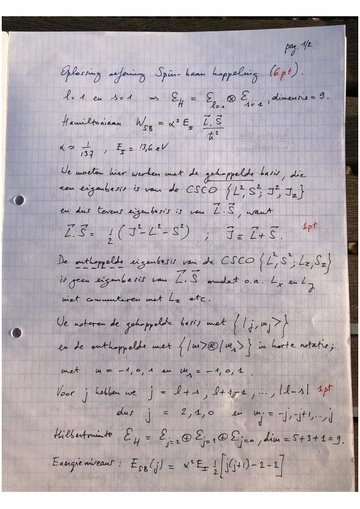 pag. 1/2
Oplossing oefening Spin-baan koppeling (6pt)
l=1 en s=1 ⇒ ℰ_H = ℰ_{l=1} ⊗ ℰ_{s=1}, dimensie = 9.
Hamiltoniaan W_SB = α² E_I \frac{\vec{L}.\vec{S}}{ħ²}
α ≈ 1/137 , E_I = 13,6 eV
We moeten hier werken met de gekoppelde basis, die
een eigenbasis is van de CSCO {L², S², J², J_z}
en dus tevens eigenbasis is van \vec{L}.\vec{S}, want
\vec{L}.\vec{S} = ½ (J²-L²-S²) ; \vec{J} = \vec{L}+\vec{S}. 1pt
De ontkoppelde eigenbasis van de CSCO {L², S², L_z, S_z}
is geen eigenbasis van \vec{L}.\vec{S} omdat o.a. L_x en L_y
niet commuteren met L_z etc.
We noteren de gekoppelde basis met {|j, m_j>}
en de ontkoppelde met {|m>⊗|m_s>} in korte notatie;
met m = -1, 0, 1 en m_s = -1, 0, 1.
Voor j hebben we j = l+s, l+s-1, ..., |l-s| 1pt
dus j = 2, 1, 0 en m_j = -j, -j+1, .., j
Hilbertruimte ℰ_H = ℰ_{j=2} ⊕ ℰ_{j=1} ⊕ ℰ_{j=0}, dim = 5+3+1 = 9.
Energieniveaus: E_SB(j) = α² E_I ½ [j(j+1)-2-2]